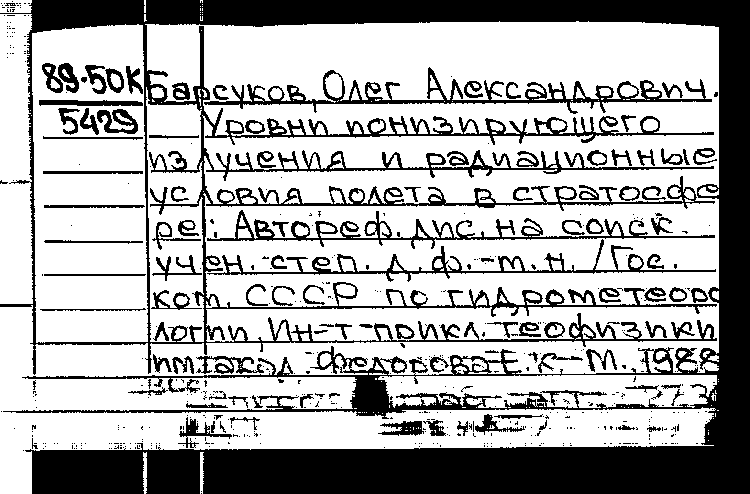 89-50К Барсуков, Олег Александрович.
5429 Уровни ионизирующего
излучения и радиационные
условия полета в стратосфе
ре: Автореф. дис. на соиск.
учен. степ. д. ф.-м. н. / Гос.
ком. СССР по гидрометеоро
логии, Ин-т прикл. геофизики
им. акад. Федорова Е.К.-М., 1988